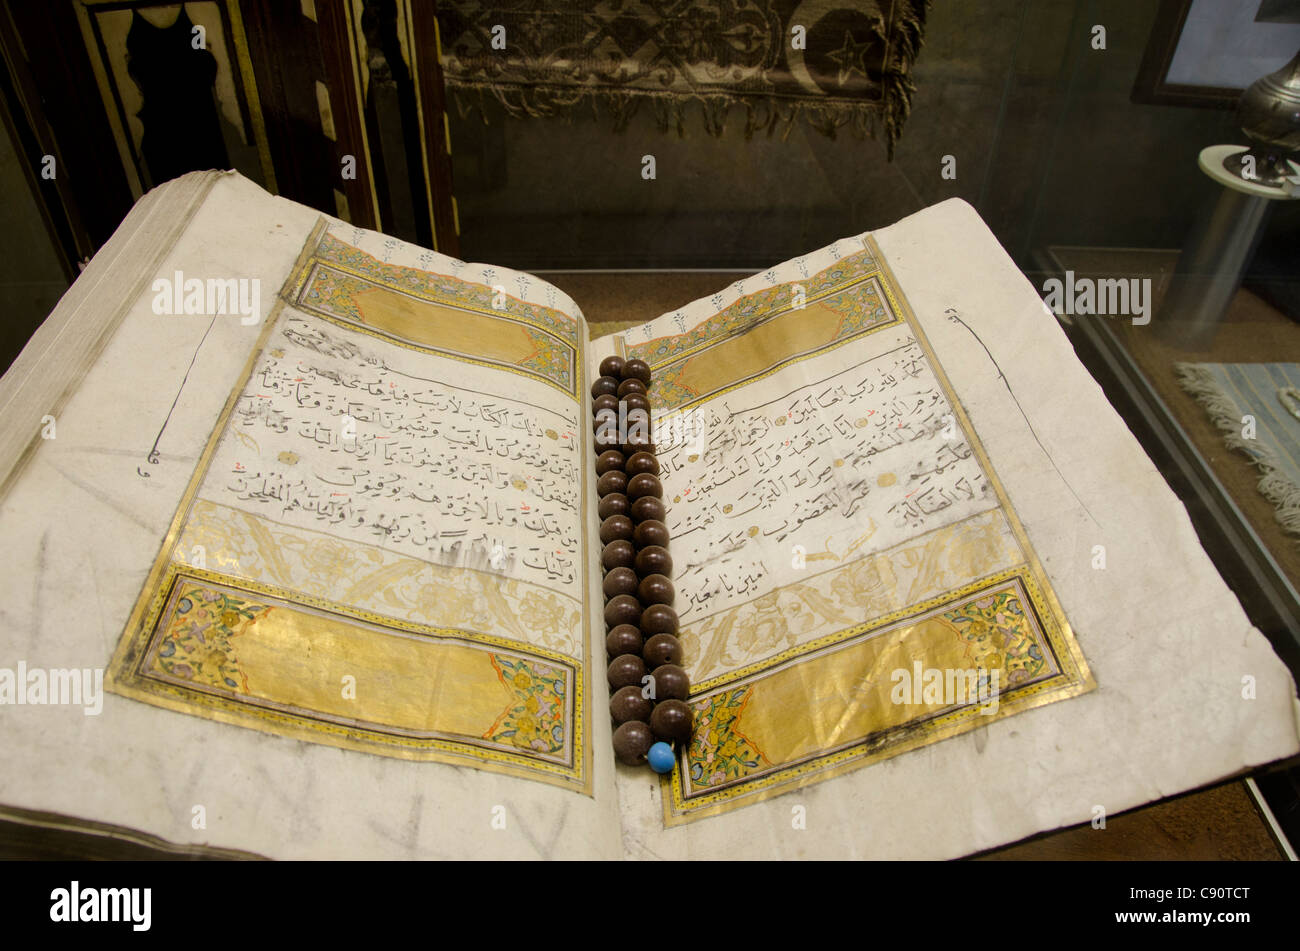 الحمد لله رب العالمين الرحمن الرحيم مالك
يوم الدين اياك نعبد واياك نستعين
المستقيم صراط الذين انعمت
عليهم غير المغضوب عليهم
ولا الضالين
امين يا معين
الم ذلك الكتاب لا ريب فيه هدى للمتقين
الذين يؤمنون بالغيب ويقيمون الصلوة ومما رزقناهم
ينفقون والذين يؤمنون بما انزل اليك وما انزل
من قبلك وبالاخرة هم يوقنون
اولئك على هدى من ربهم واولئك هم المفلحون
alamy
Image ID: C90TCT
www.alamy.com